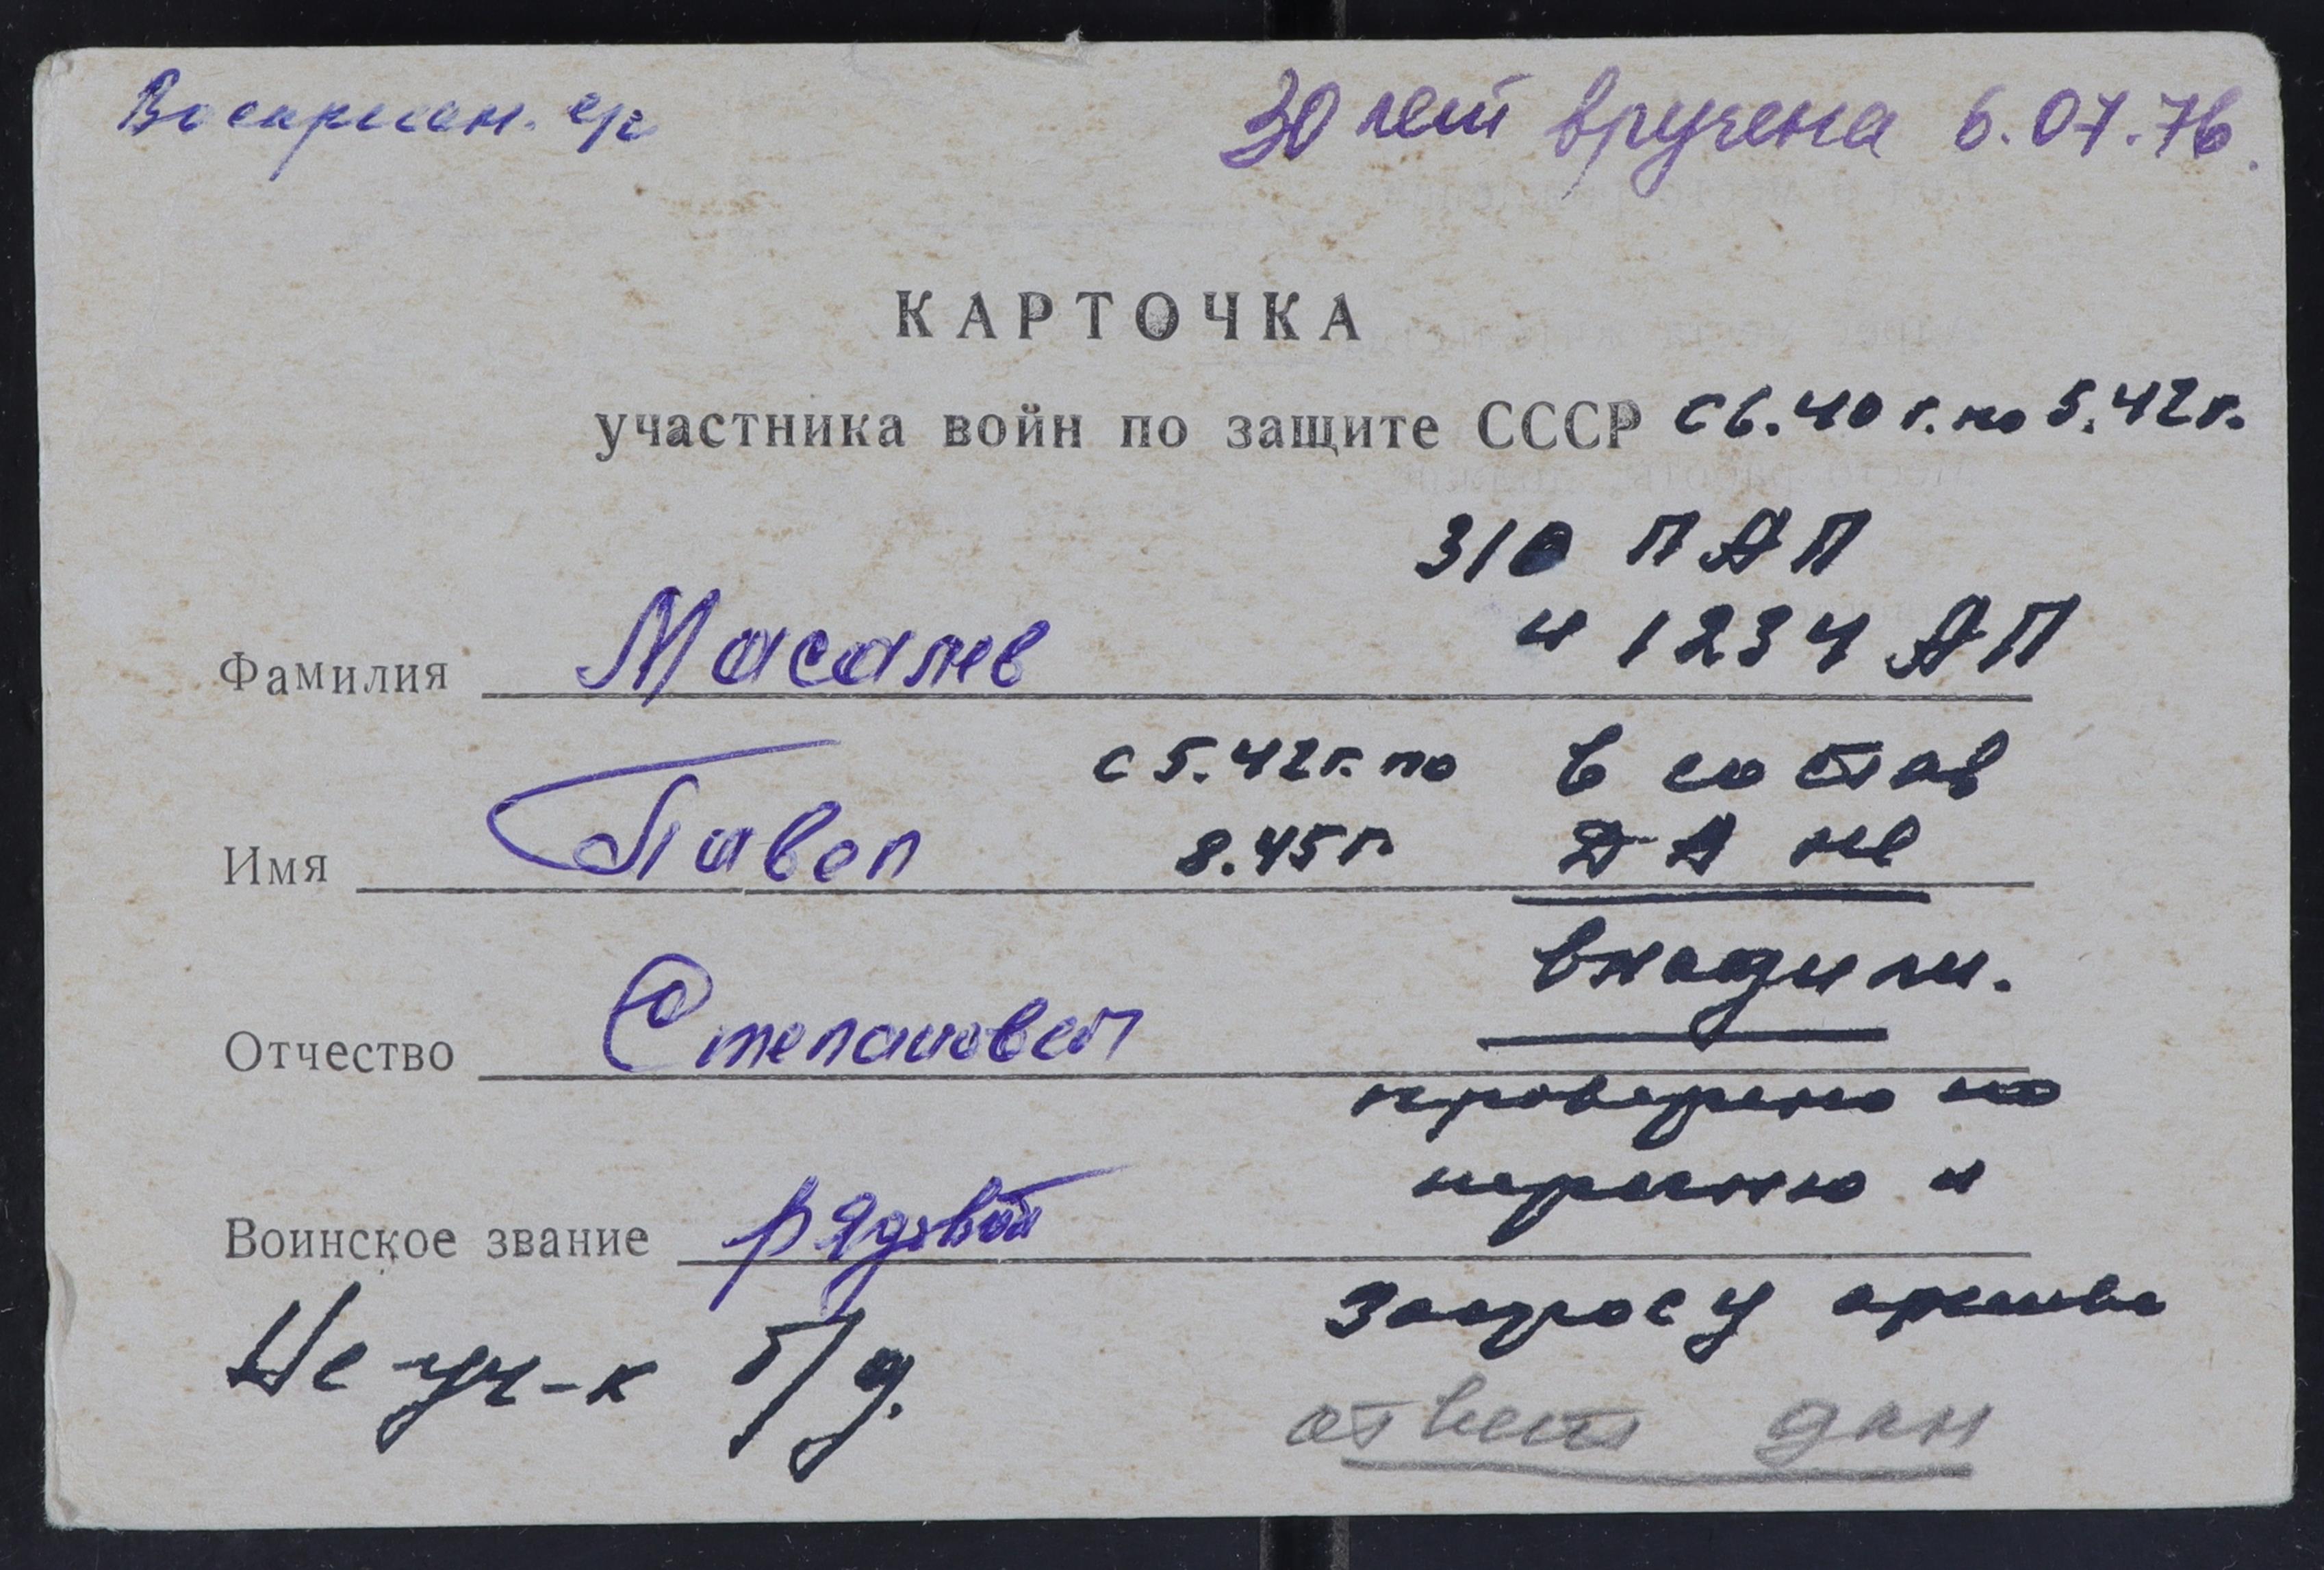 Воскресен. ер
30 лет вручена 6.07.76.
КАРТОЧКА
участника войн по защите СССР с 6.40 г. по 5.42 г.
310 ПАП
и 1234 АП
Фамилия Масалев
с 5.42 г. по в состав
Имя Павел 8.45 г. ДА не
входили.
Отчество Степанович
проверено по
перечню и
Воинское звание рядовой
запросу архива
Не уч-к б/д.
ответ дан